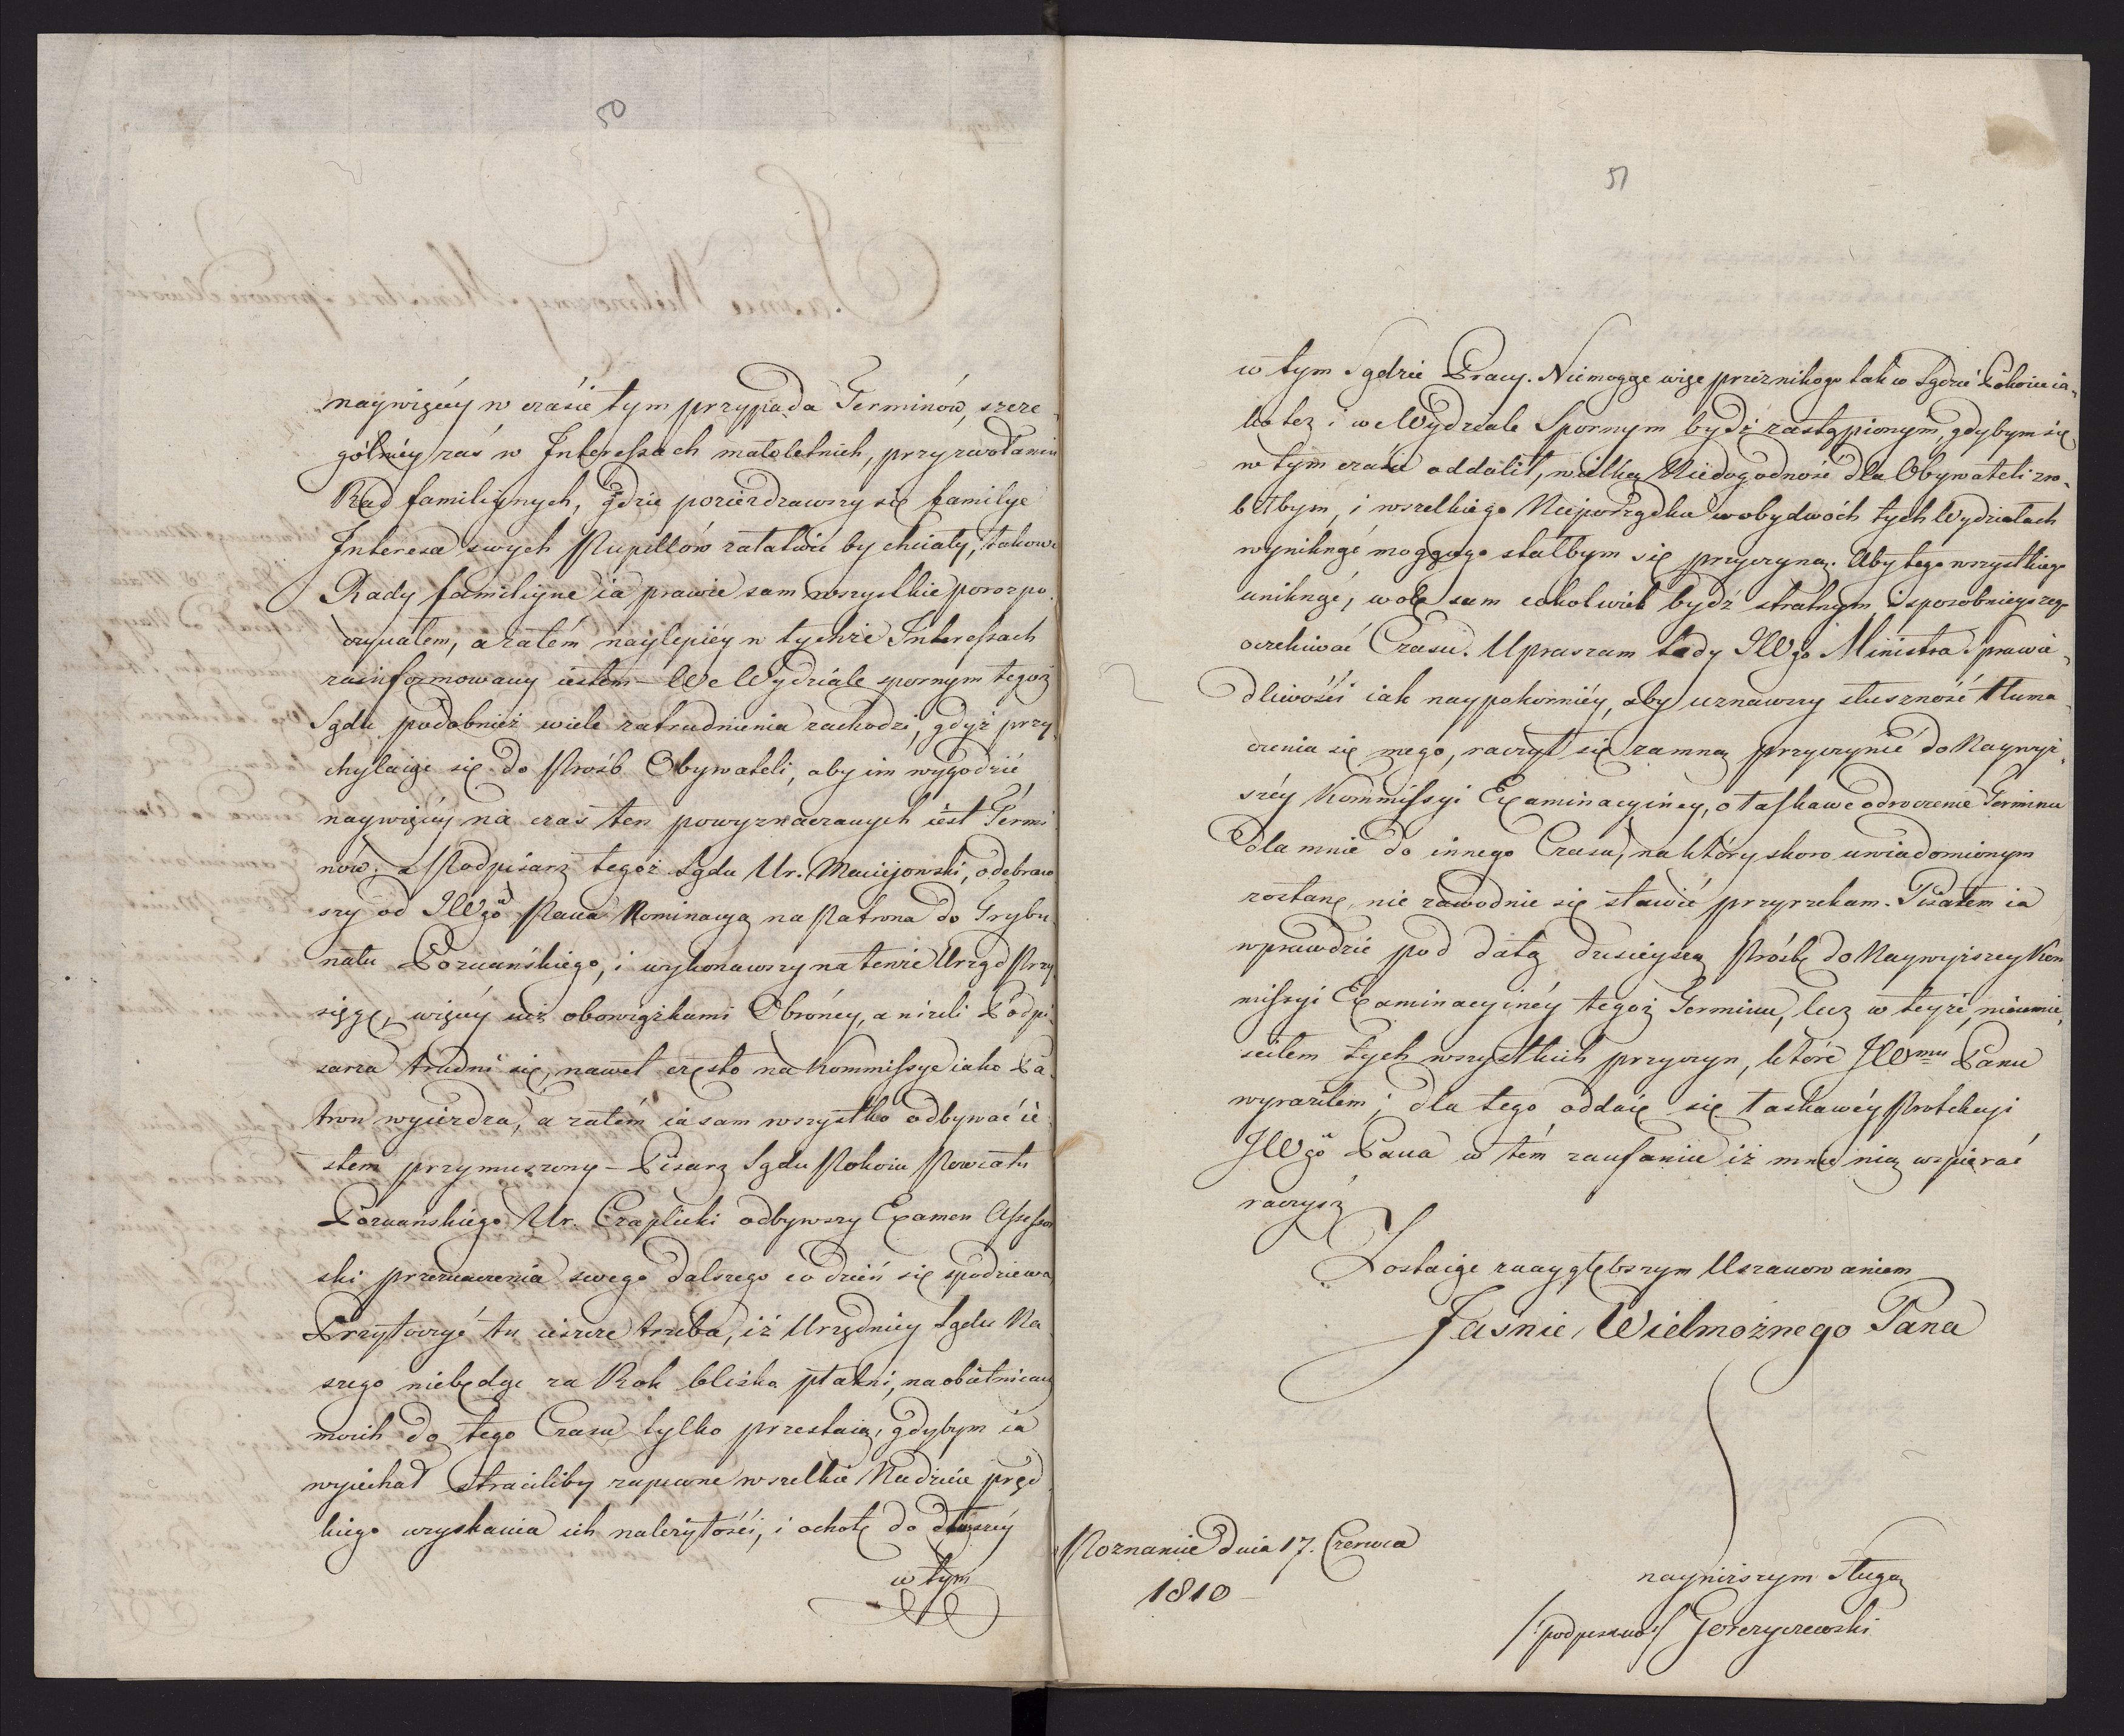 50
naywięcéy w czásie tym przypada Terminów, szcze-
gólniéy zaś w Interessach małoletnich, przyzwołaniu
Rad familiynych, gdzie poziezdzawszy się familye
Interesa swych Pupillów załatwić by chciały, takowe
Rady familiyne ia prawie sam wszystkie porozpo-
czynałem, a zatém naylepiéy w tychże Interessach
zainformowany iestem – We Wydziale spornym tegoż
Sądu podobnież wiele zatrudnienia zachodzi, gdyż przy-
chylaiąc się do Próśb Obywateli, aby im wygodzić
naywięcéy na czas ten powyznaczanych iest Termi-
nów, a Podpisarz tegoż Sądu Ur. Maciejowski, odebraw-
szy od JWgo Pana Nominacyą na Patrona do Trybu-
nału Poznańskiego, i wykonawszy na tenże Urząd Przy-
sięgę, więcéy iuż obowiązkami Obróńcy, aniżeli Podpi-
sarza trudni się, nawet często na Kommissye iako Pa-
tron wyiezdza, a zatém ia sam wszystko odbywać ie-
stem przymuszony – Pisarz Sądu Pokoiu Powiatu
Poznańskiego Ur. Czaplicki odbywszy Examen Assessor-
ski przeznaczenia swego dalszego co dzień się spodziewa
Przytoczyć tu ieszcze trzeba, iż Urzędnicy Sądu Na-
szego niebędąc za Rok blisko płatni, na obietnicach
moich do tego Czasu tylko przestaią, gdybym ia
wyiechał straciliby zapewne wszelkie Nadzieie pręd-
kiego uzyskania ich należytości, i ochotę do dłuższéy
w tym
51
w tym Sądzie Pracy. Niemogąc więc przez nikogo tak w Sądzie Pokoiu ia-
ko też i we Wydziale Spornym bydź zastąpionym, gdybym się
w tym czasie oddalił, wielką Niedogodność dla Obywateli zro-
biłbym, i wszelkiego Nieporządku w obydwóch tych Wydziałach
wyniknąć mogącego stałbym się przyczyną. Aby tego wszystkiego
uniknąć, wolę sam cokolwiek bydź stratnym i sposobnieyszego
oczekiwać Czasu. Upraszam tedy JWgo Ministra Sprawie-
dliwości iak naypokorniéy, aby uznawszy słuszność tłuma-
czenia się mego, raczył się zamną przyczynić do Naywyż-
széy Kommissyi Examinacyiney, o łaskawe odroczenie Terminu
dla mnie do innego Czasu, na który skoro uwiadomionym
zostanę, nie zawodnie się stawić przyrzekam. Pisałem ia
wprawdzie pod datą dzisieyszą Próśbę do Naywyższey Kom-
missyi Examinacyinéy tegoż Terminu, lecz w teyże, nieumie-
ściłem tych wszystkich przyczyn, które JWmu Panu
wyraziłem; dla tego oddaię się łaskawéy Protekcyi
JWgo Pana w tém zaufaniu iż mnie nią wspierać
raczysz
Zostaiąc z naygłębszym Uszanowaniem
Jaśnie Wielmożnego Pana
Poznaniu dnia 17. Czerwca
1810 –
nayniższym sługą
/:podpisano:/ Gorczyczewski